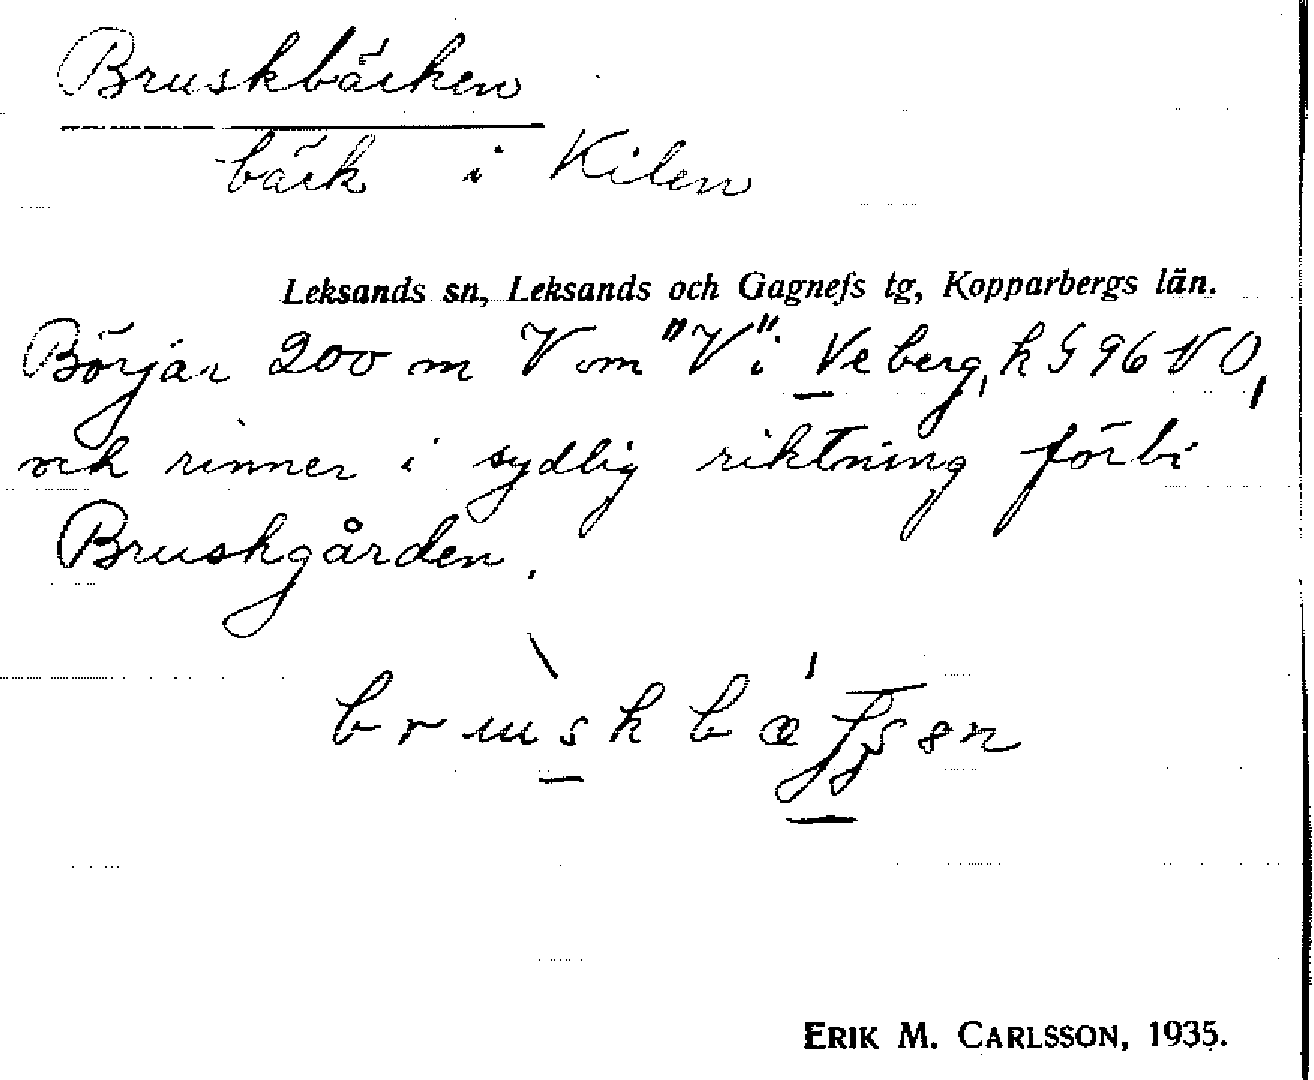 Bruskbäcken
bäck i Kilen
Leksands sn, Leksands och Gagnefs tg, Kopparbergs län.
Börjar 200 m V om "V" i Veberg, k G 96 NO,
och rinner i sydlig riktning förbi
Bruskgården.
ERIK M. CARLSSON, 1935.